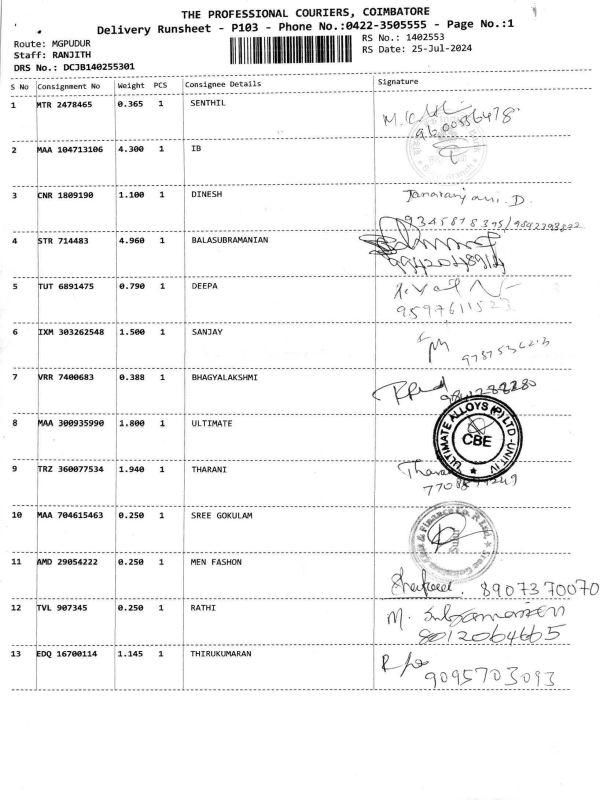 THE PROFESSIONAL COURIERS, COIMBATORE
Delivery Runsheet - P103 - Phone No.:0422-3505555 - Page No.:1
Route: MGPUDUR
RS No.: 1402553
Staff: RANJITH
RS Date: 25-Jul-2024
DRS No.: DCJB140255301
S No Consignment No Weight PCS Consignee Details Signature
1 MTR 2478465 0.365 1 SENTHIL
2 MAA 104713106 4.300 1 IB
3 CNR 1809190 1.100 1 DINESH
4 STR 714483 4.960 1 BALASUBRAMANIAN
5 TUT 6891475 0.790 1 DEEPA
9597611523
6 IXM 303262548 1.500 1 SANJAY
7 VRR 7400683 0.388 1 BHAGYALAKSHMI
8 MAA 300935990 1.800 1 ULTIMATE
ULTIMATE ALLOYS (P) LTD-UNIT IV
CBE
9 TRZ 360077534 1.940 1 THARANI
10 MAA 704615463 0.250 1 SREE GOKULAM
11 AMD 29054222 0.250 1 MEN FASHON
8907370070
12 TVL 907345 0.250 1 RATHI
8012064665
13 EDQ 16700114 1.145 1 THIRUKUMARAN
9095703093